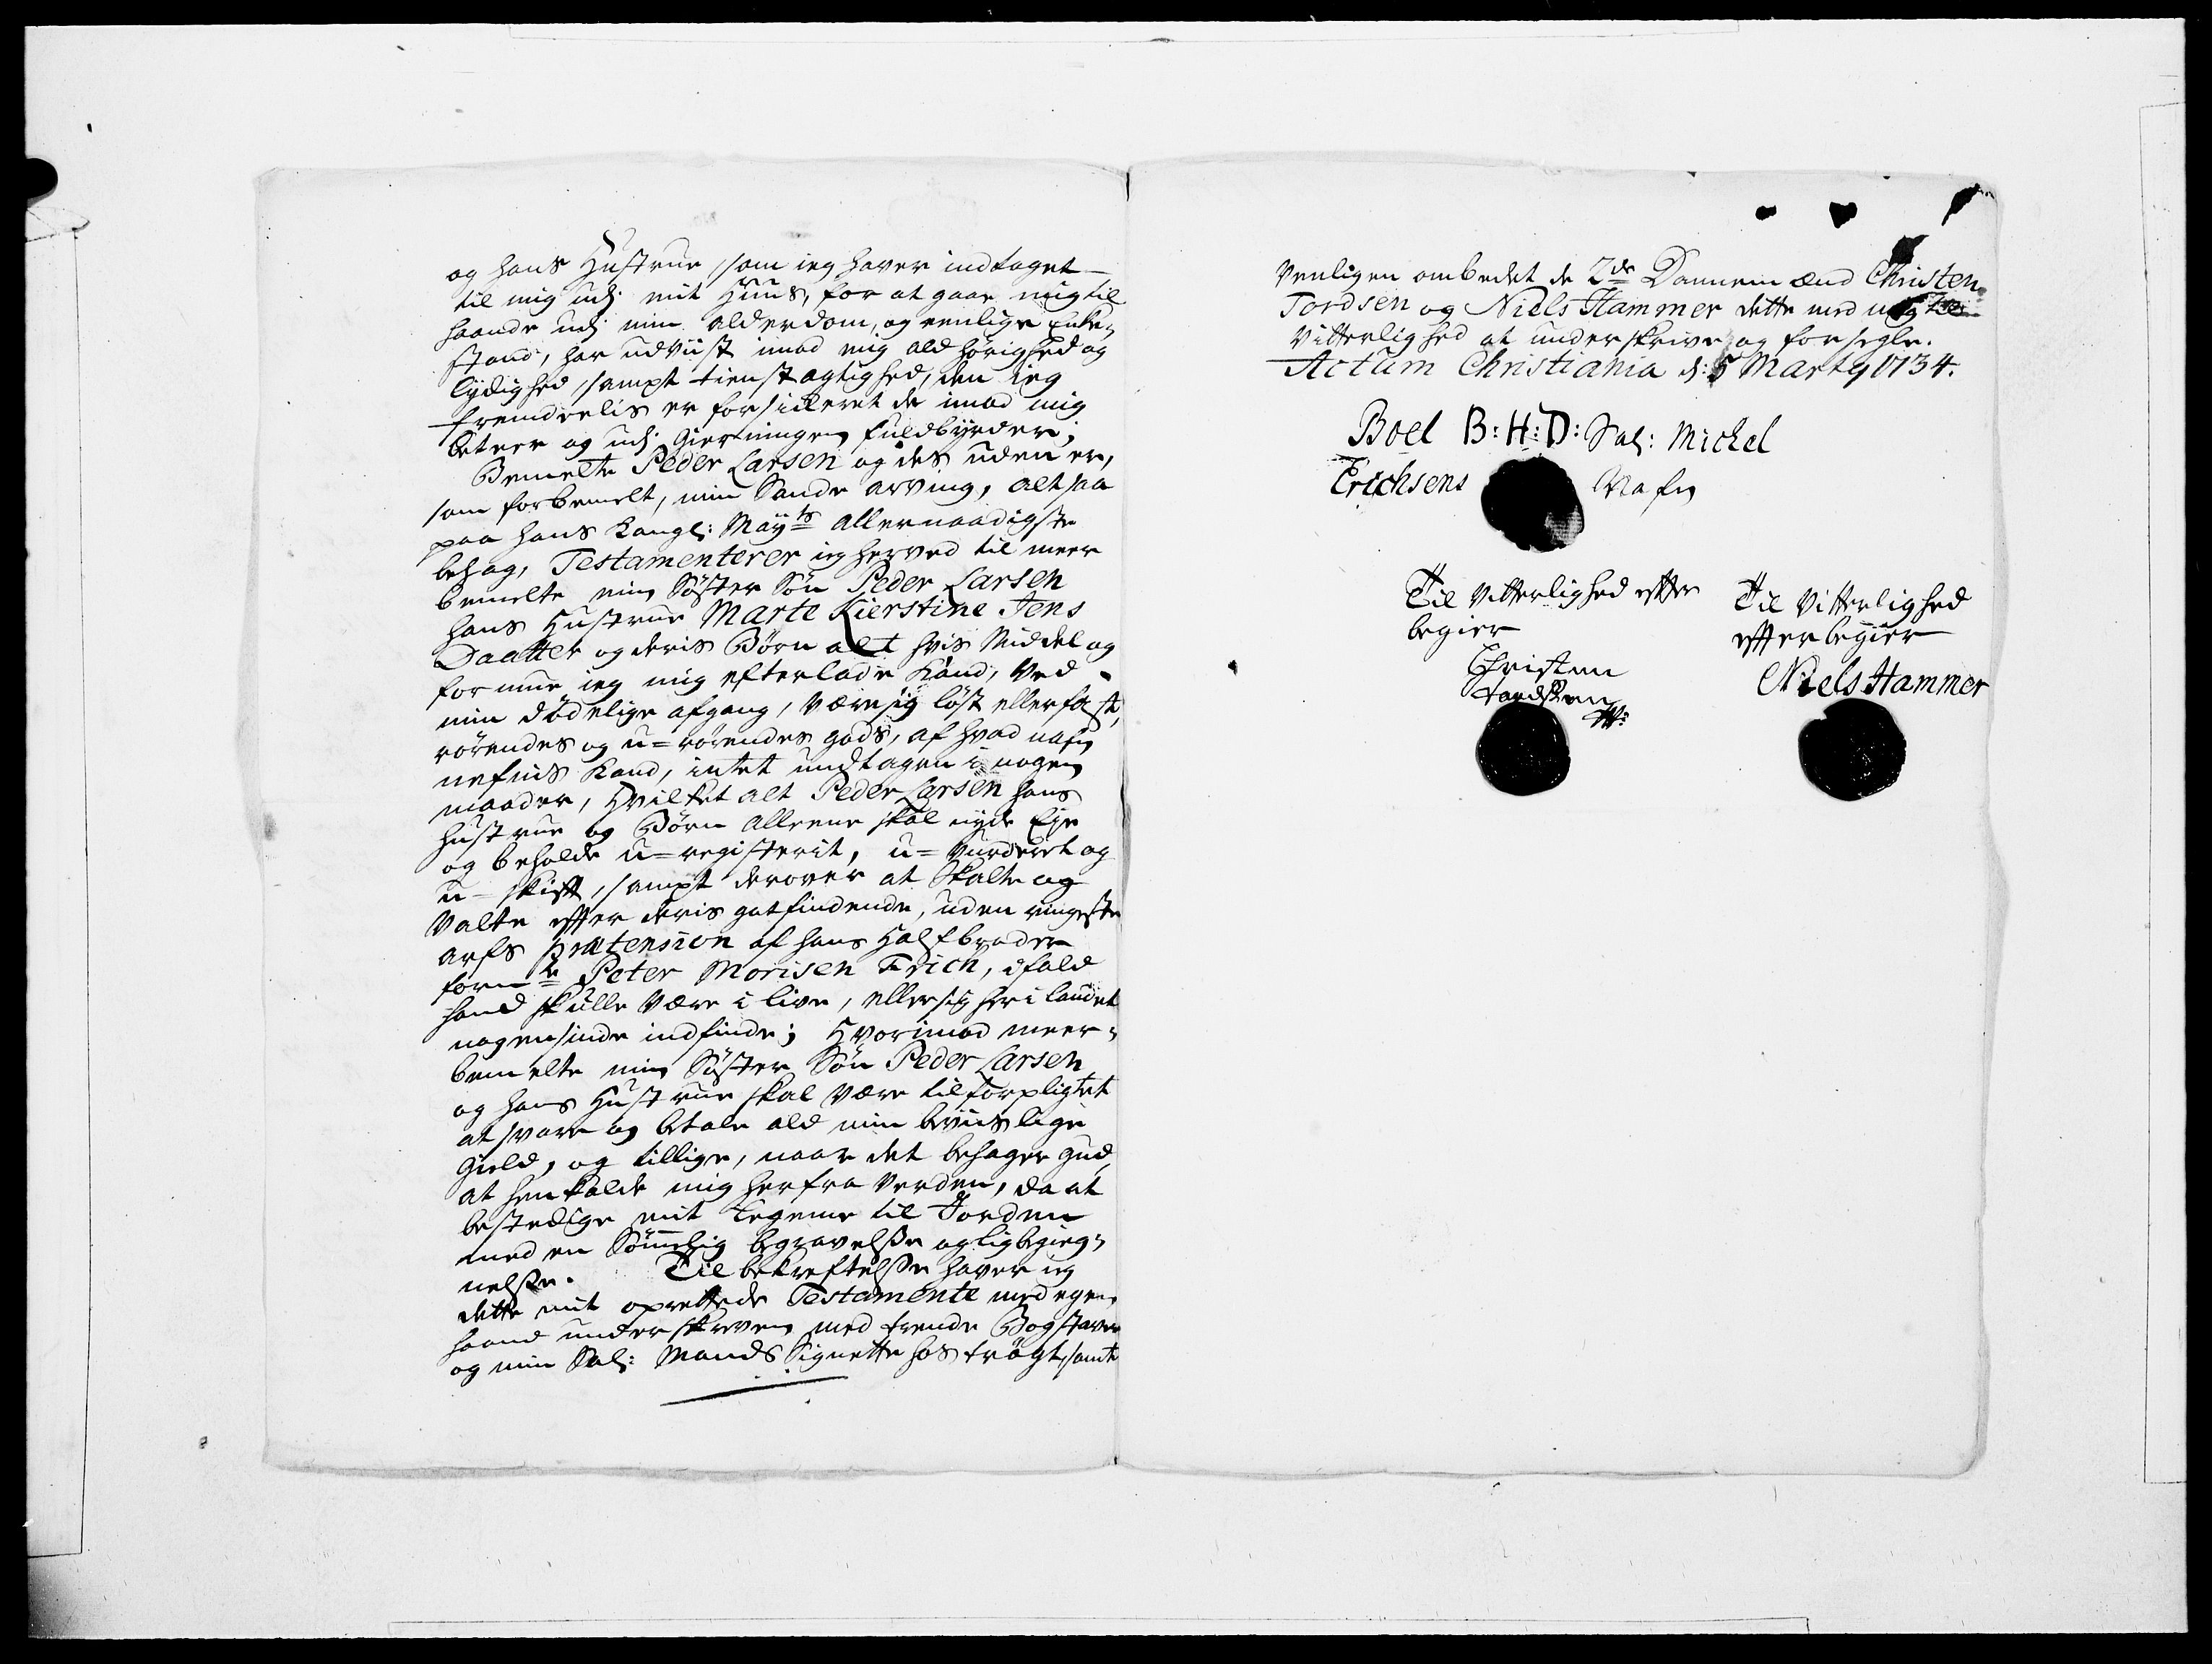 og hans Hustrue, som ieg haver indtaget
til mig udj mit Huus, for at gaae mig til
haande udj min alderdom, og eenlige Enke-
stand, har udviist imod mig ald hørighed og
lydighed, sampt tienstagtighed, den ieg
fremdeelis er forsickeret de imod mig
beteer og udj Gierningen fuldbyrder;
Bemelte Peder Larsen og des uden er,
som forbemelt, min Sande arving, alt saa
paa hans Kongl: Mayts allernaadigste
behag, Testamenterer ieg herved til meer
bemelte min Søster Søn Peder Larsen
hans Hustrue Marte Kierstine Jens
Daatter og deris Børn alt hvis Middel og
formue ieg mig efterlade Kand, ved
min dødelige afgang, være sig løst eller fast,
rørendes og u=rørendes gods, af hvad nafn
nefnis kand, intet undtagen i nogen
maader, Hvilket alt Peder Larsen hans
hustrue og Børn alleene skal nyde Eje
og beholde u=registerit, u=vurderet og
u-skift, sampt derover at Skalte og
Valte efter deris gotfindende, uden ringeste
arfs prætension af hans Halfbroder
forne Peter Morisen Frich, ifald
hand skulle være i live, eller sig her i landet
nogensinde indfinde; Hvorimod meer-
bemelte min Søster Søn Peder Larsen
og hans Hustrue skal være tilforpligtet
at svare og betale ald min beviislige
gield, og tillige, naar det behager Gud
at henkalde mig herfra Verden, da at
bestedige mit Legeme til Jorden
med en Sømmelig begravelsse og ligbegieng-
nelsse. Til bekreftelsse haver ieg
dette mit oprettede Testamente med egen
haand underskreven med trende Bogstaver
og min Sal: Mands Signette hostrøgt, samt
venligen ombedet de 2de Dannemænd Christen
Tordsen og Niels Hammer dette med mig til
Vitterlighed at underskrive og forsegle.
Actum Christiania d: 5 Marty 1734.
Boel B:H:D: Sal: Michel
Erichsens Nafn
Til Vitterlighed efter
begier
Christen
Tordsen
Til Vitterlighed
efter begier
Niels Hammer